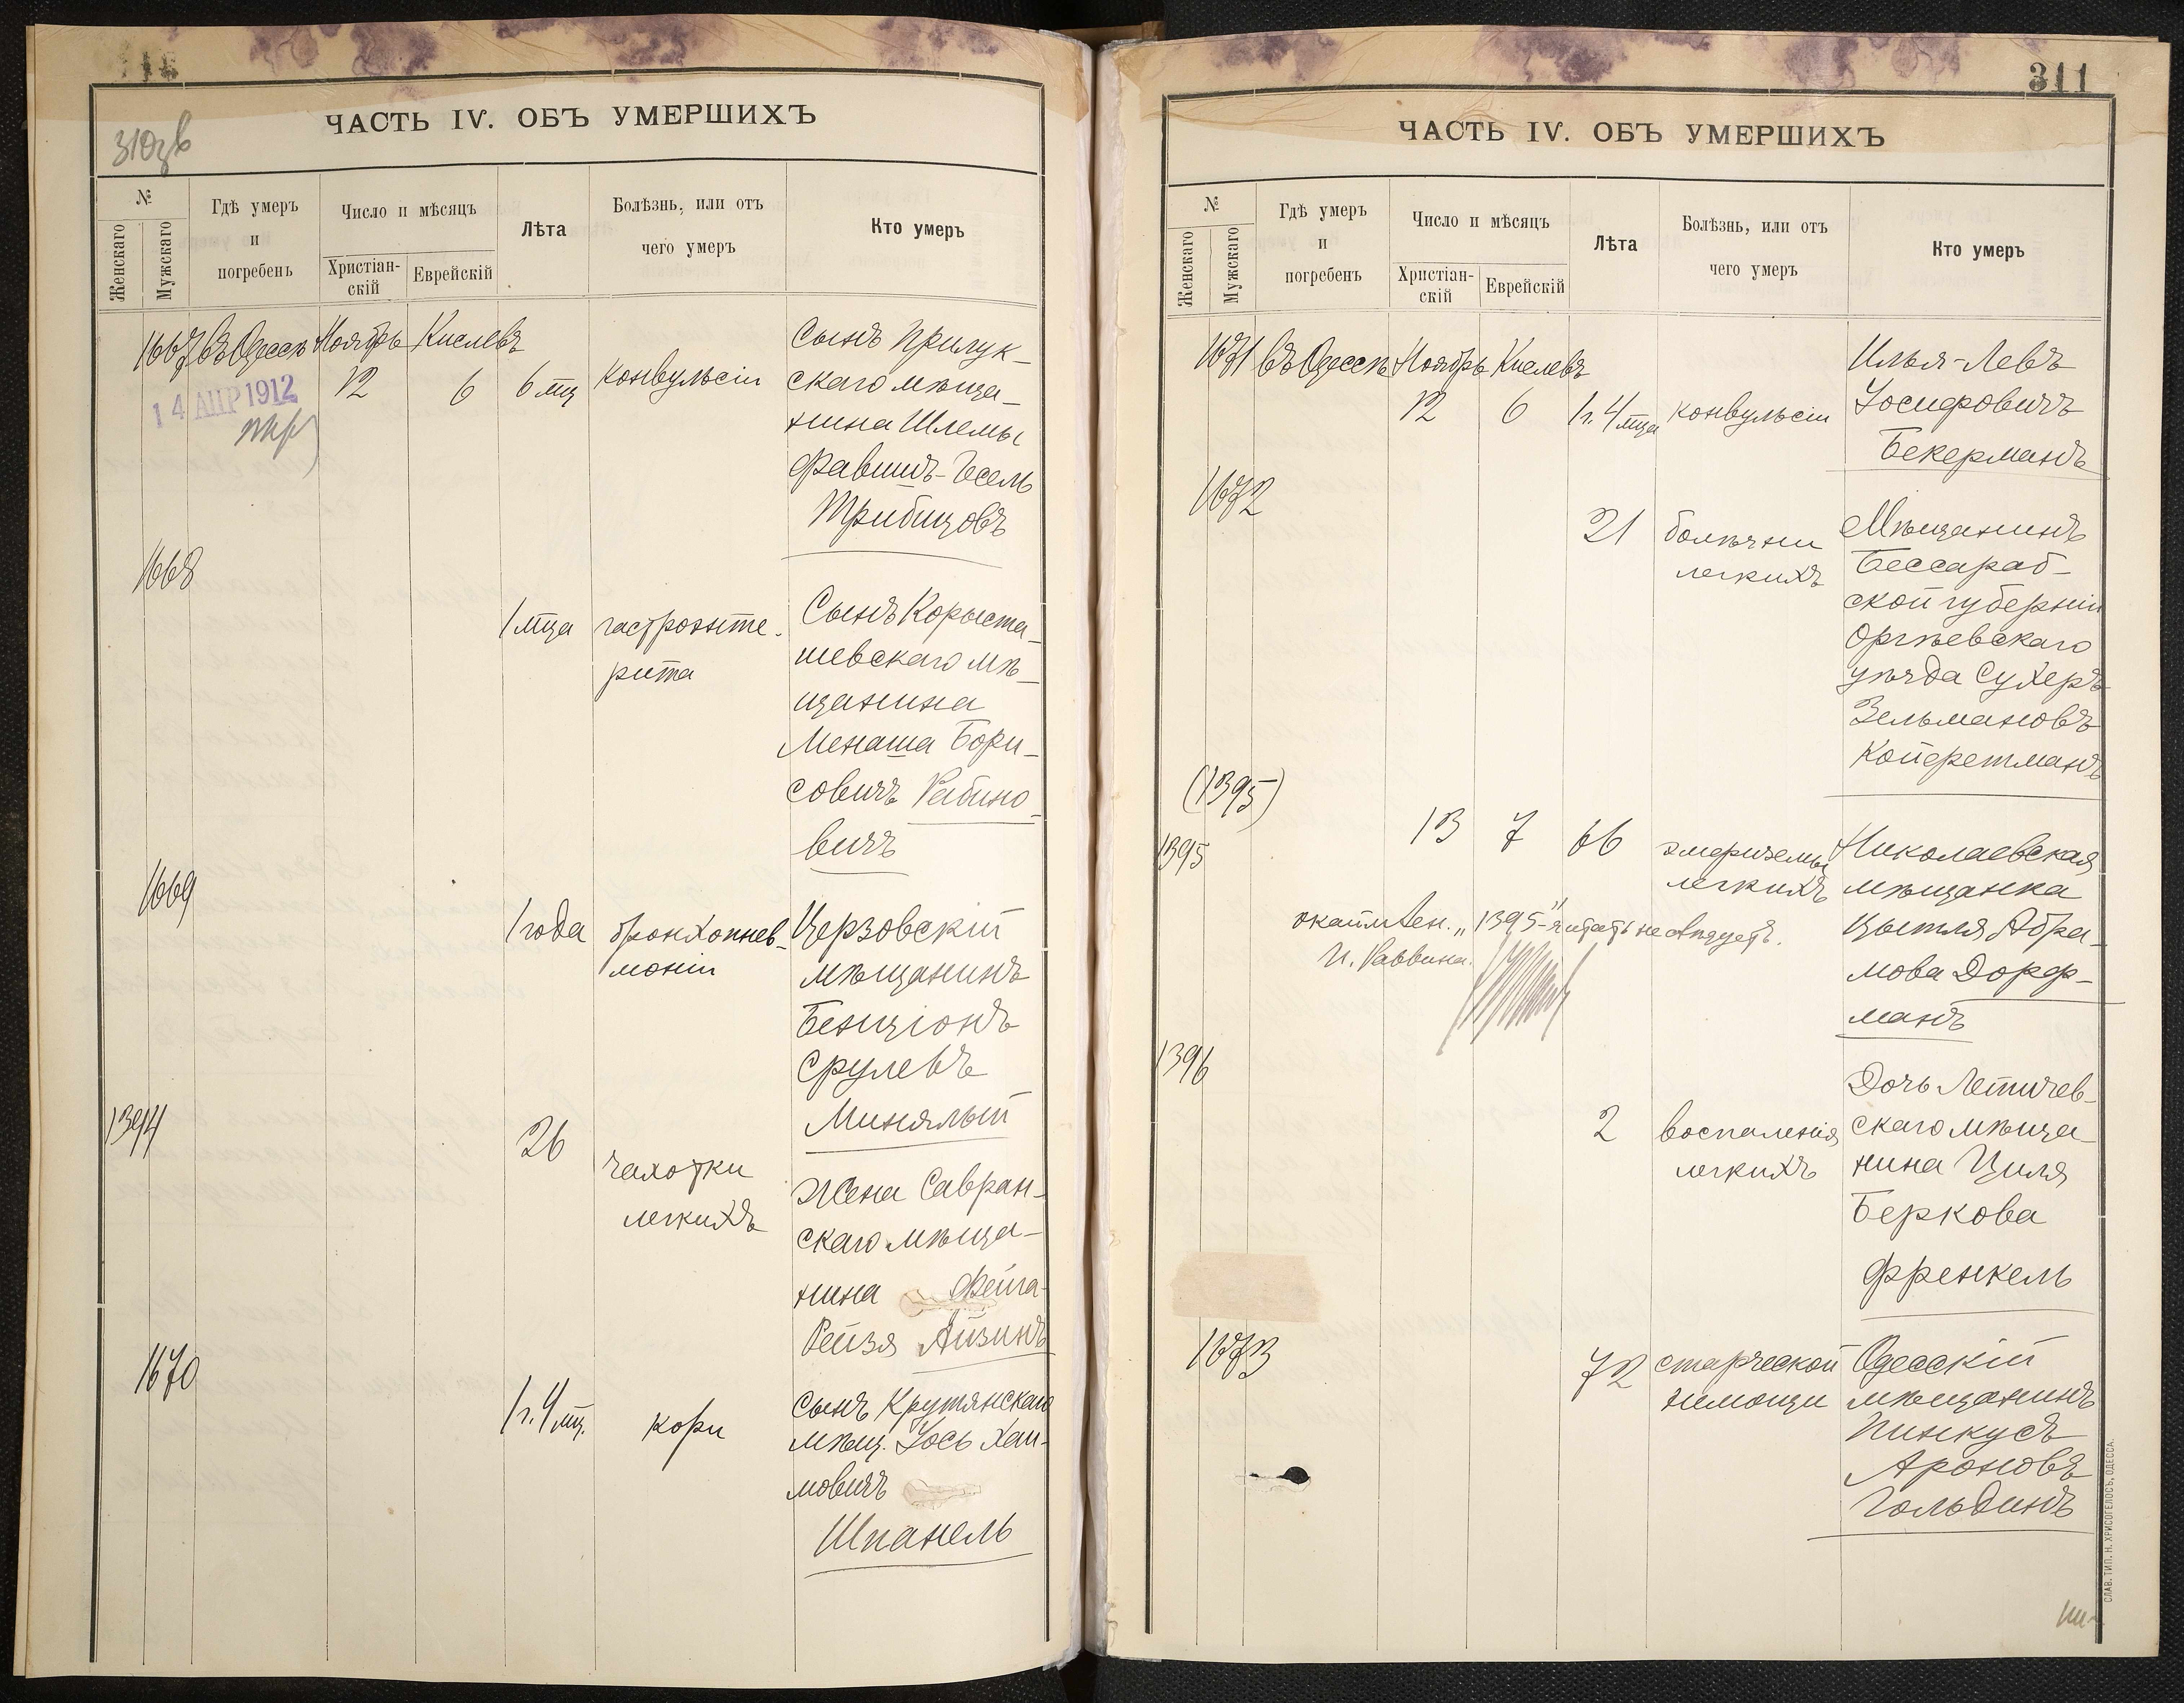 310 зв
ЧАСТЬ IV. ОБЪ УМЕРШИХЪ
№
Женскаго
Мужскаго
Гдѣ умеръ
и
погребенъ
Число и мѣсяцъ
Христіан-
скій
Еврейскій
Лѣта
Болѣзнь, или отъ
чего умеръ
Кто умеръ
1667 въ Одессѣ Ноябрь Кислевъ
12 6 6 мц конвульсіи
14 АПР 1912
Сынъ Прилук-
скаго мѣща-
нина Шлемы
Фавишъ-Іосель
Трибицовъ
1668
1 мца гастроэнте-
рита
Сынъ Корыста-
шевскаго мѣ-
щанина
Менаша Бори-
совичъ Рабино-
вичъ
1669
1 года бронхопнев-
моніи
Церзовскій
мѣщанинъ
Бенціонъ
Срулевъ
Минялый
1394
26 чахотки
легкихъ
Жена Савран-
скаго мѣща-
нина Фейга-
Рейзя Айзинъ
1670
1 г. 4 мц. кори
Сынъ Крутянскаго
мѣщ. Іось Хаи-
мовичъ
Шпанель
311
ЧАСТЬ IV. ОБЪ УМЕРШИХЪ
№
Женскаго
Мужскаго
Гдѣ умеръ
и
погребенъ
Число и мѣсяцъ
Христіан-
скій
Еврейскій
Лѣта
Болѣзнь, или отъ
чего умеръ
Кто умеръ
1671 въ Одессѣ Ноябрь Кислевъ
12 6 1 г. 4 мца конвульсіи
Илья-Левъ
Іосифовичъ
Бекерманъ
1672
21 болѣзни
легкихъ
Мѣщанинъ
Бессараб-
ской губерніи
Оргѣевскаго
уѣзда Сухеръ
Зельмановъ
Койфетманъ
(1395)
1395
13 7 66 эмфиземы
легкихъ
Николаевская
мѣщанка
Цытля Абра-
мова Дорф-
манъ
"1395" читать не слѣдуетъ.
И. Раввина.
1396
2 воспаленія
легкихъ
Дочь Летичев-
скаго мѣща-
нина Циля
Беркова
Френкель
1673
72 старческой
немощи
Одесскій
мѣщанинъ
Пинкусъ
Ароновъ
Гольдинъ
СЛАВ. ТИП. Н. ХРИСОГЕЛОСЪ, ОДЕССА.